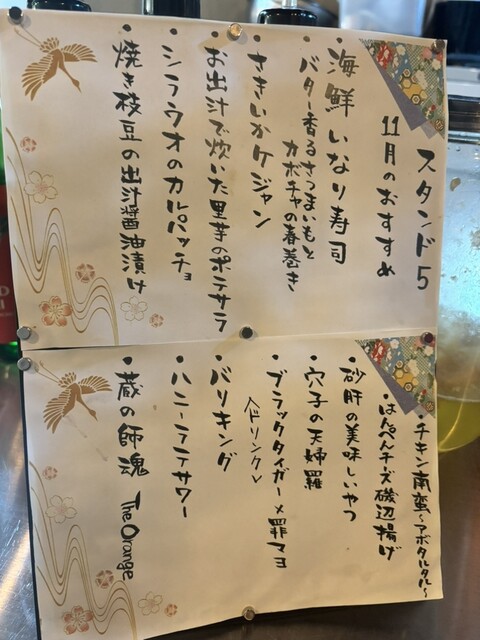 スタンド5
11月のおすすめ
・海鮮いなり寿司
・バター香るさつまいもと
カボチャの春巻き
・さきいかケジャン
・お出汁で炊いた里芋のポテサラ
・シラウオのカルパッチョ
・焼き枝豆の出汁醤油漬け
・チキン南蛮〜アボタルタル〜
・はんぺんチーズ磯辺揚げ
・砂肝の美味しいやつ
・穴子の天婦羅
・ブラックタイガー×罪マヨ
〈ドリンク〉
・バリキング
・ハニーラテサワー
・蔵の師魂 The Orange